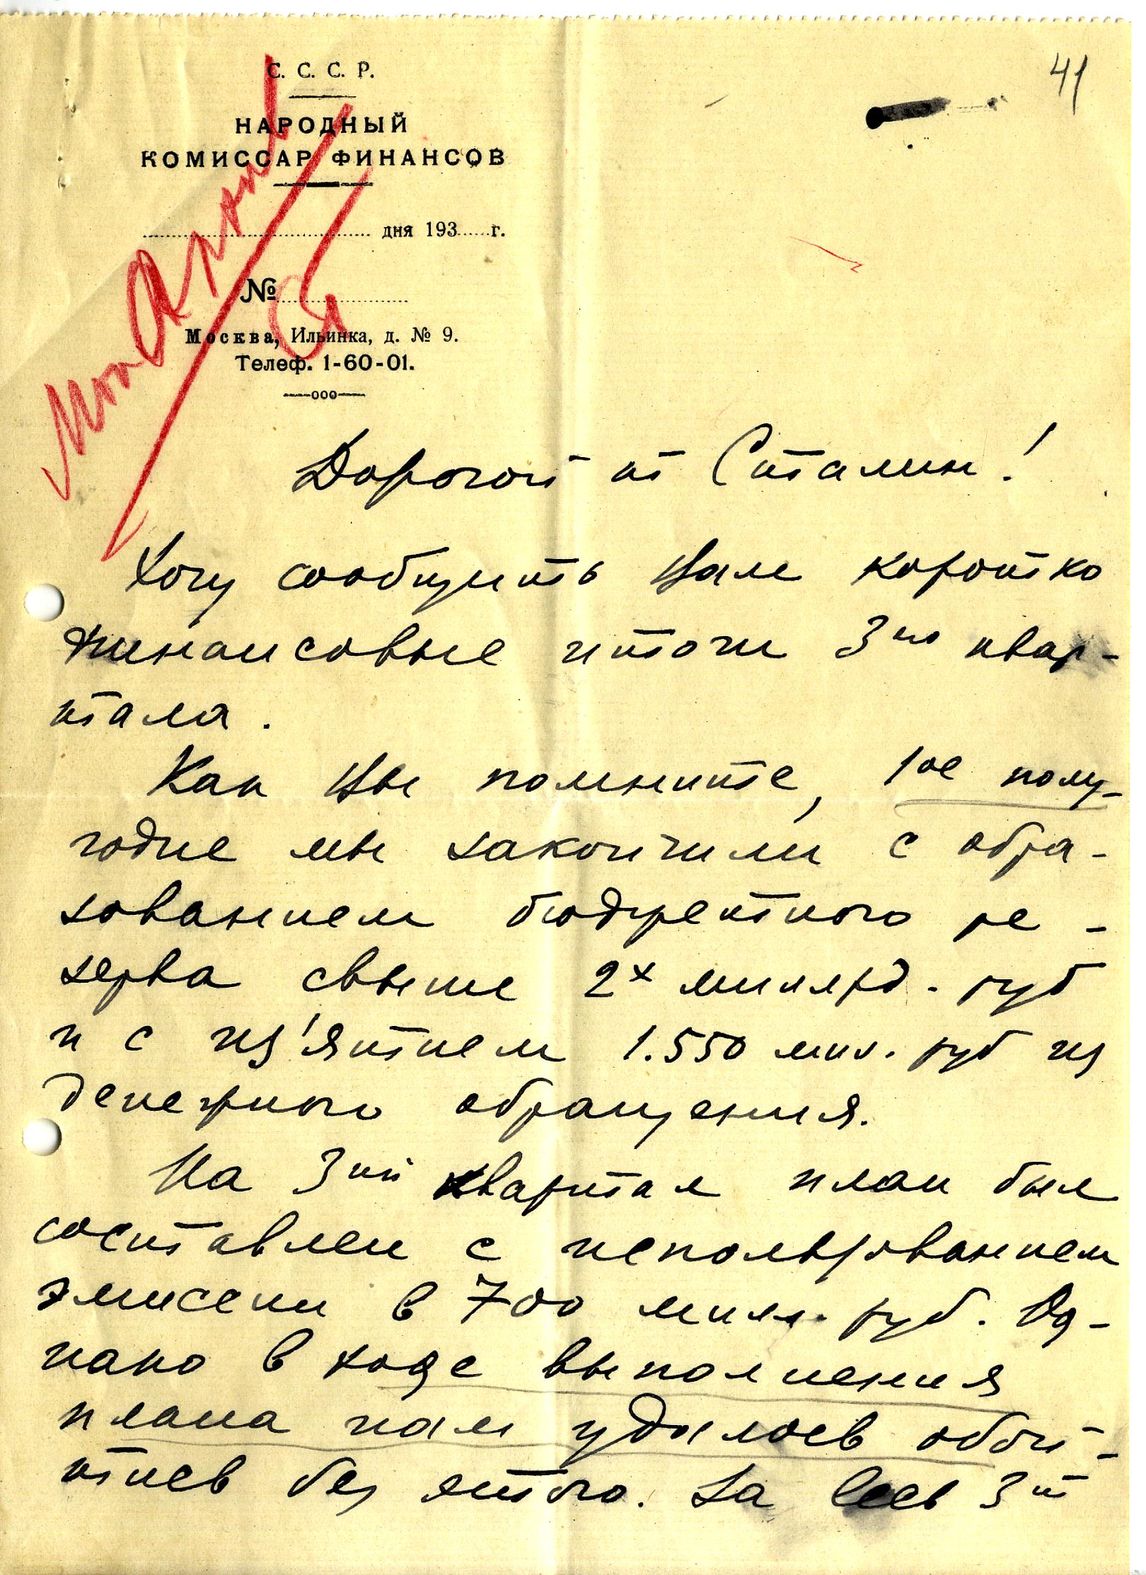 41
С. С. С. Р.
НАРОДНЫЙ
КОМИССАР ФИНАНСОВ
дня 193 г.
№
Москва, Ильинка, д. № 9.
Телеф. 1-60-01.
Мой Архив
Ст
Дорогой т Сталин!
Хочу сообщить Вам коротко
финансовые итоги 3го квар-
тала.
Как Вы помните, 1ое полу-
годие мы закончили с обра-
зованием бюджетного ре-
зерва свыше 2х миллрд. руб
и с из'ятием 1.550 мил. руб из
денежного обращения.
На 3ий квартал план был
составлен с использованием
эмиссии в 700 милл. руб. Од-
нако в ходе выполнения
плана нам удалось обой-
тись без этого. За весь 3й